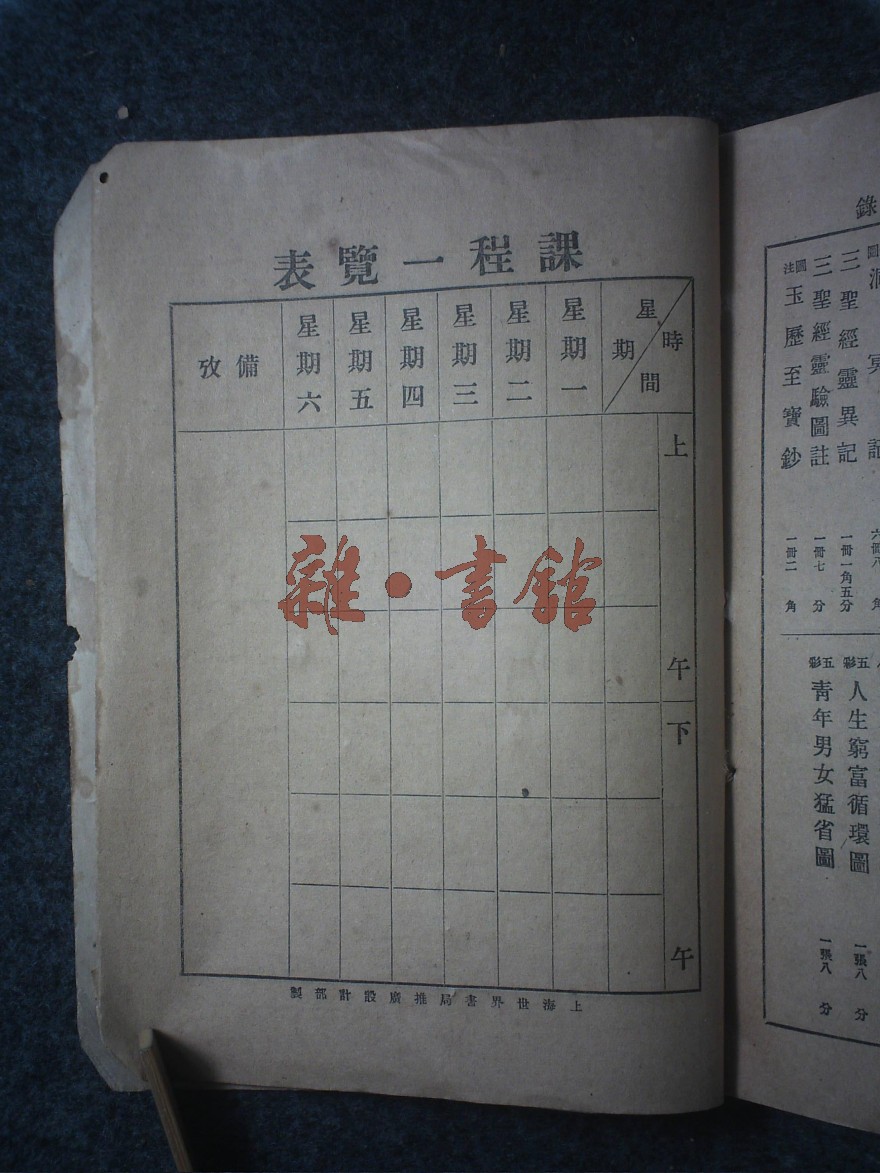 錄
三聖經靈異記 一冊一角五分
三聖經靈驗圖註 一冊七分
圖注玉歷至寶鈔 一冊二角
五彩人生窮富循環圖 一張八分
五彩青年男女猛省圖 一張八分
課程一覽表
時間
星期
星期一
星期二
星期三
星期四
星期五
星期六
備攷
上午
下午
上海世界書局推廣設計部製
雜·書館